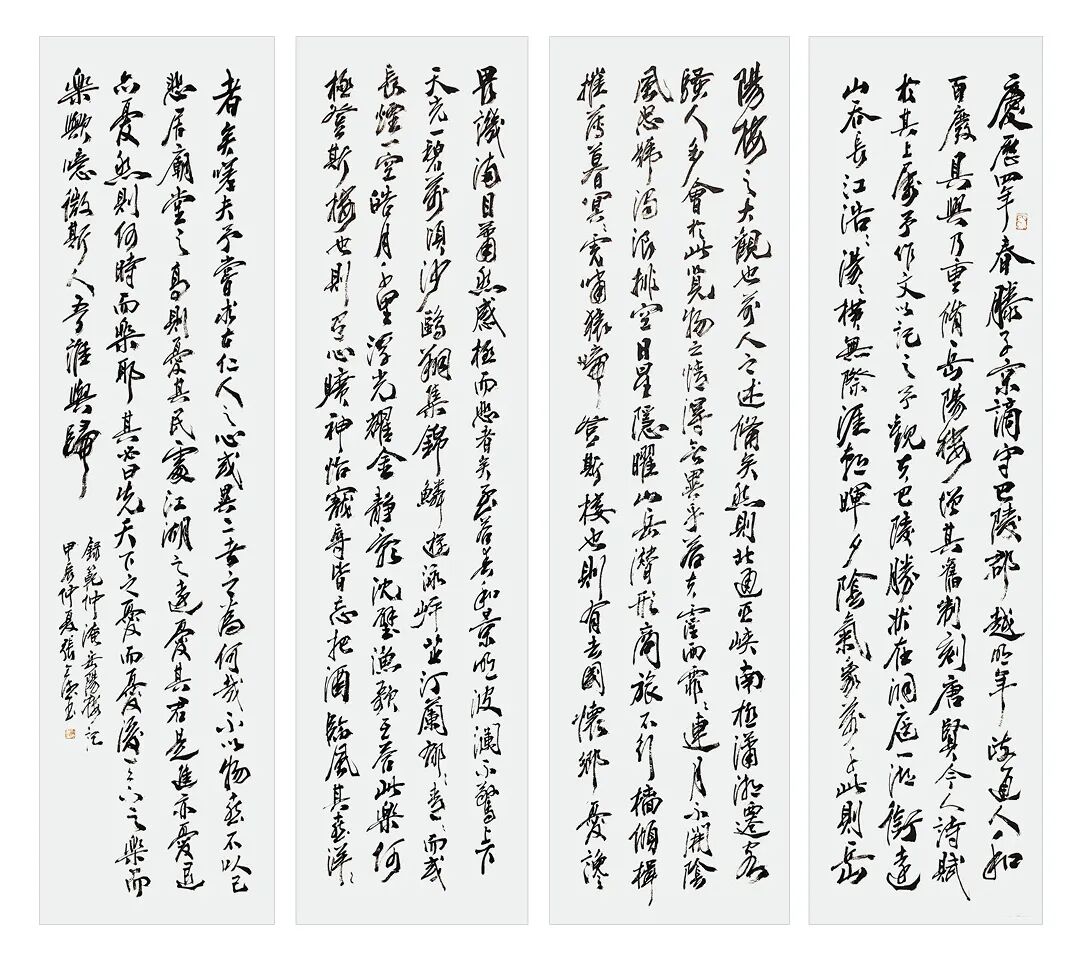 慶歷四年春滕子京謫守巴陵郡越明年政通人和
百廢具興乃重脩岳陽樓增其舊制刻唐賢今人詩賦
於其上屬予作文以記之予觀夫巴陵勝狀在洞庭一湖銜遠
山吞長江浩〻湯〻橫無際涯朝暉夕陰氣象萬千此則岳
陽樓之大觀也前人之述備矣然則北通巫峽南極瀟湘遷客
騷人多會於此覽物之情得無異乎若夫霪雨霏〻連月不開陰
風怒號濁浪排空日星隱曜山岳潛形商旅不行檣傾楫
摧薄暮冥〻虎嘯猿啼登斯樓也則有去國懷鄉憂讒
畏譏滿目蕭然感極而悲者矣至若春和景明波瀾不驚上下
天光一碧萬頃沙鷗翔集錦鱗游泳岸芷汀蘭郁〻青〻而或
長煙一空皓月千里浮光耀金靜影沈璧漁歌互答此樂何
極登斯樓也則有心曠神怡寵辱皆忘把酒臨風其喜洋〻
者矣嗟夫予嘗求古仁人之心或異二者之為何哉不以物喜不以己
悲居廟堂之高則憂其民處江湖之遠憂其君是進亦憂退
亦憂然則何時而樂耶其必曰先天下之憂而憂後天下之樂而
樂歟噫微斯人吾誰與歸
錄範仲淹岳陽樓記
甲辰仲夏張